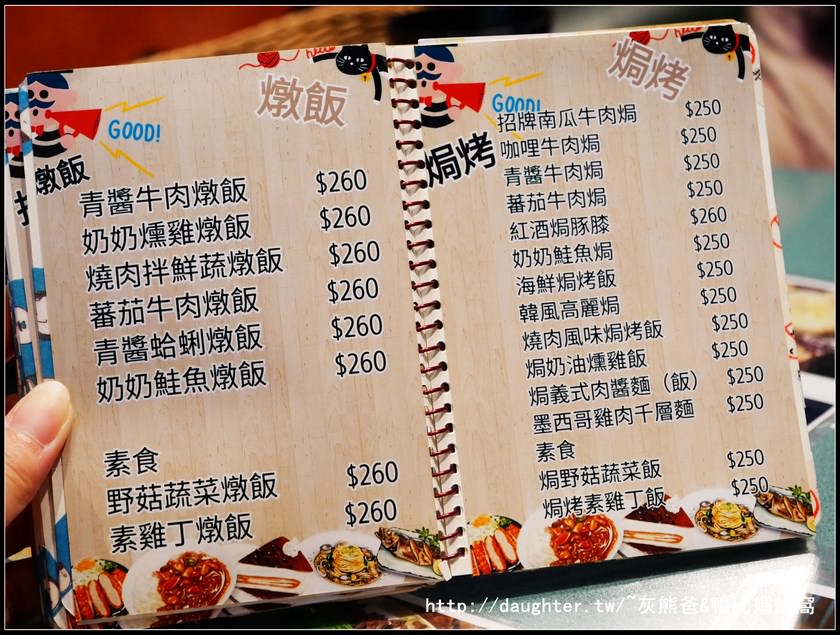 燉飯
GOOD!
燉飯
青醬牛肉燉飯 $260
奶奶燻雞燉飯 $260
燒肉拌鮮蔬燉飯 $260
蕃茄牛肉燉飯 $260
青醬蛤蜊燉飯 $260
奶奶鮭魚燉飯 $260
素食
野菇蔬菜燉飯 $260
素雞丁燉飯 $260
焗烤
GOOD!
焗烤
招牌南瓜牛肉焗 $250
咖哩牛肉焗 $250
青醬牛肉焗 $250
蕃茄牛肉焗 $250
紅酒焗豚膝 $260
奶奶鮭魚焗 $250
海鮮焗烤飯 $250
韓風高麗焗 $250
燒肉風味焗烤飯 $250
焗奶油燻雞飯 $250
焗義式肉醬麵（飯） $250
墨西哥雞肉千層麵 $250
素食
焗野菇蔬菜飯 $250
焗烤素雞丁飯 $250
http://daughter.tw/~灰熊爸&鴨
窩